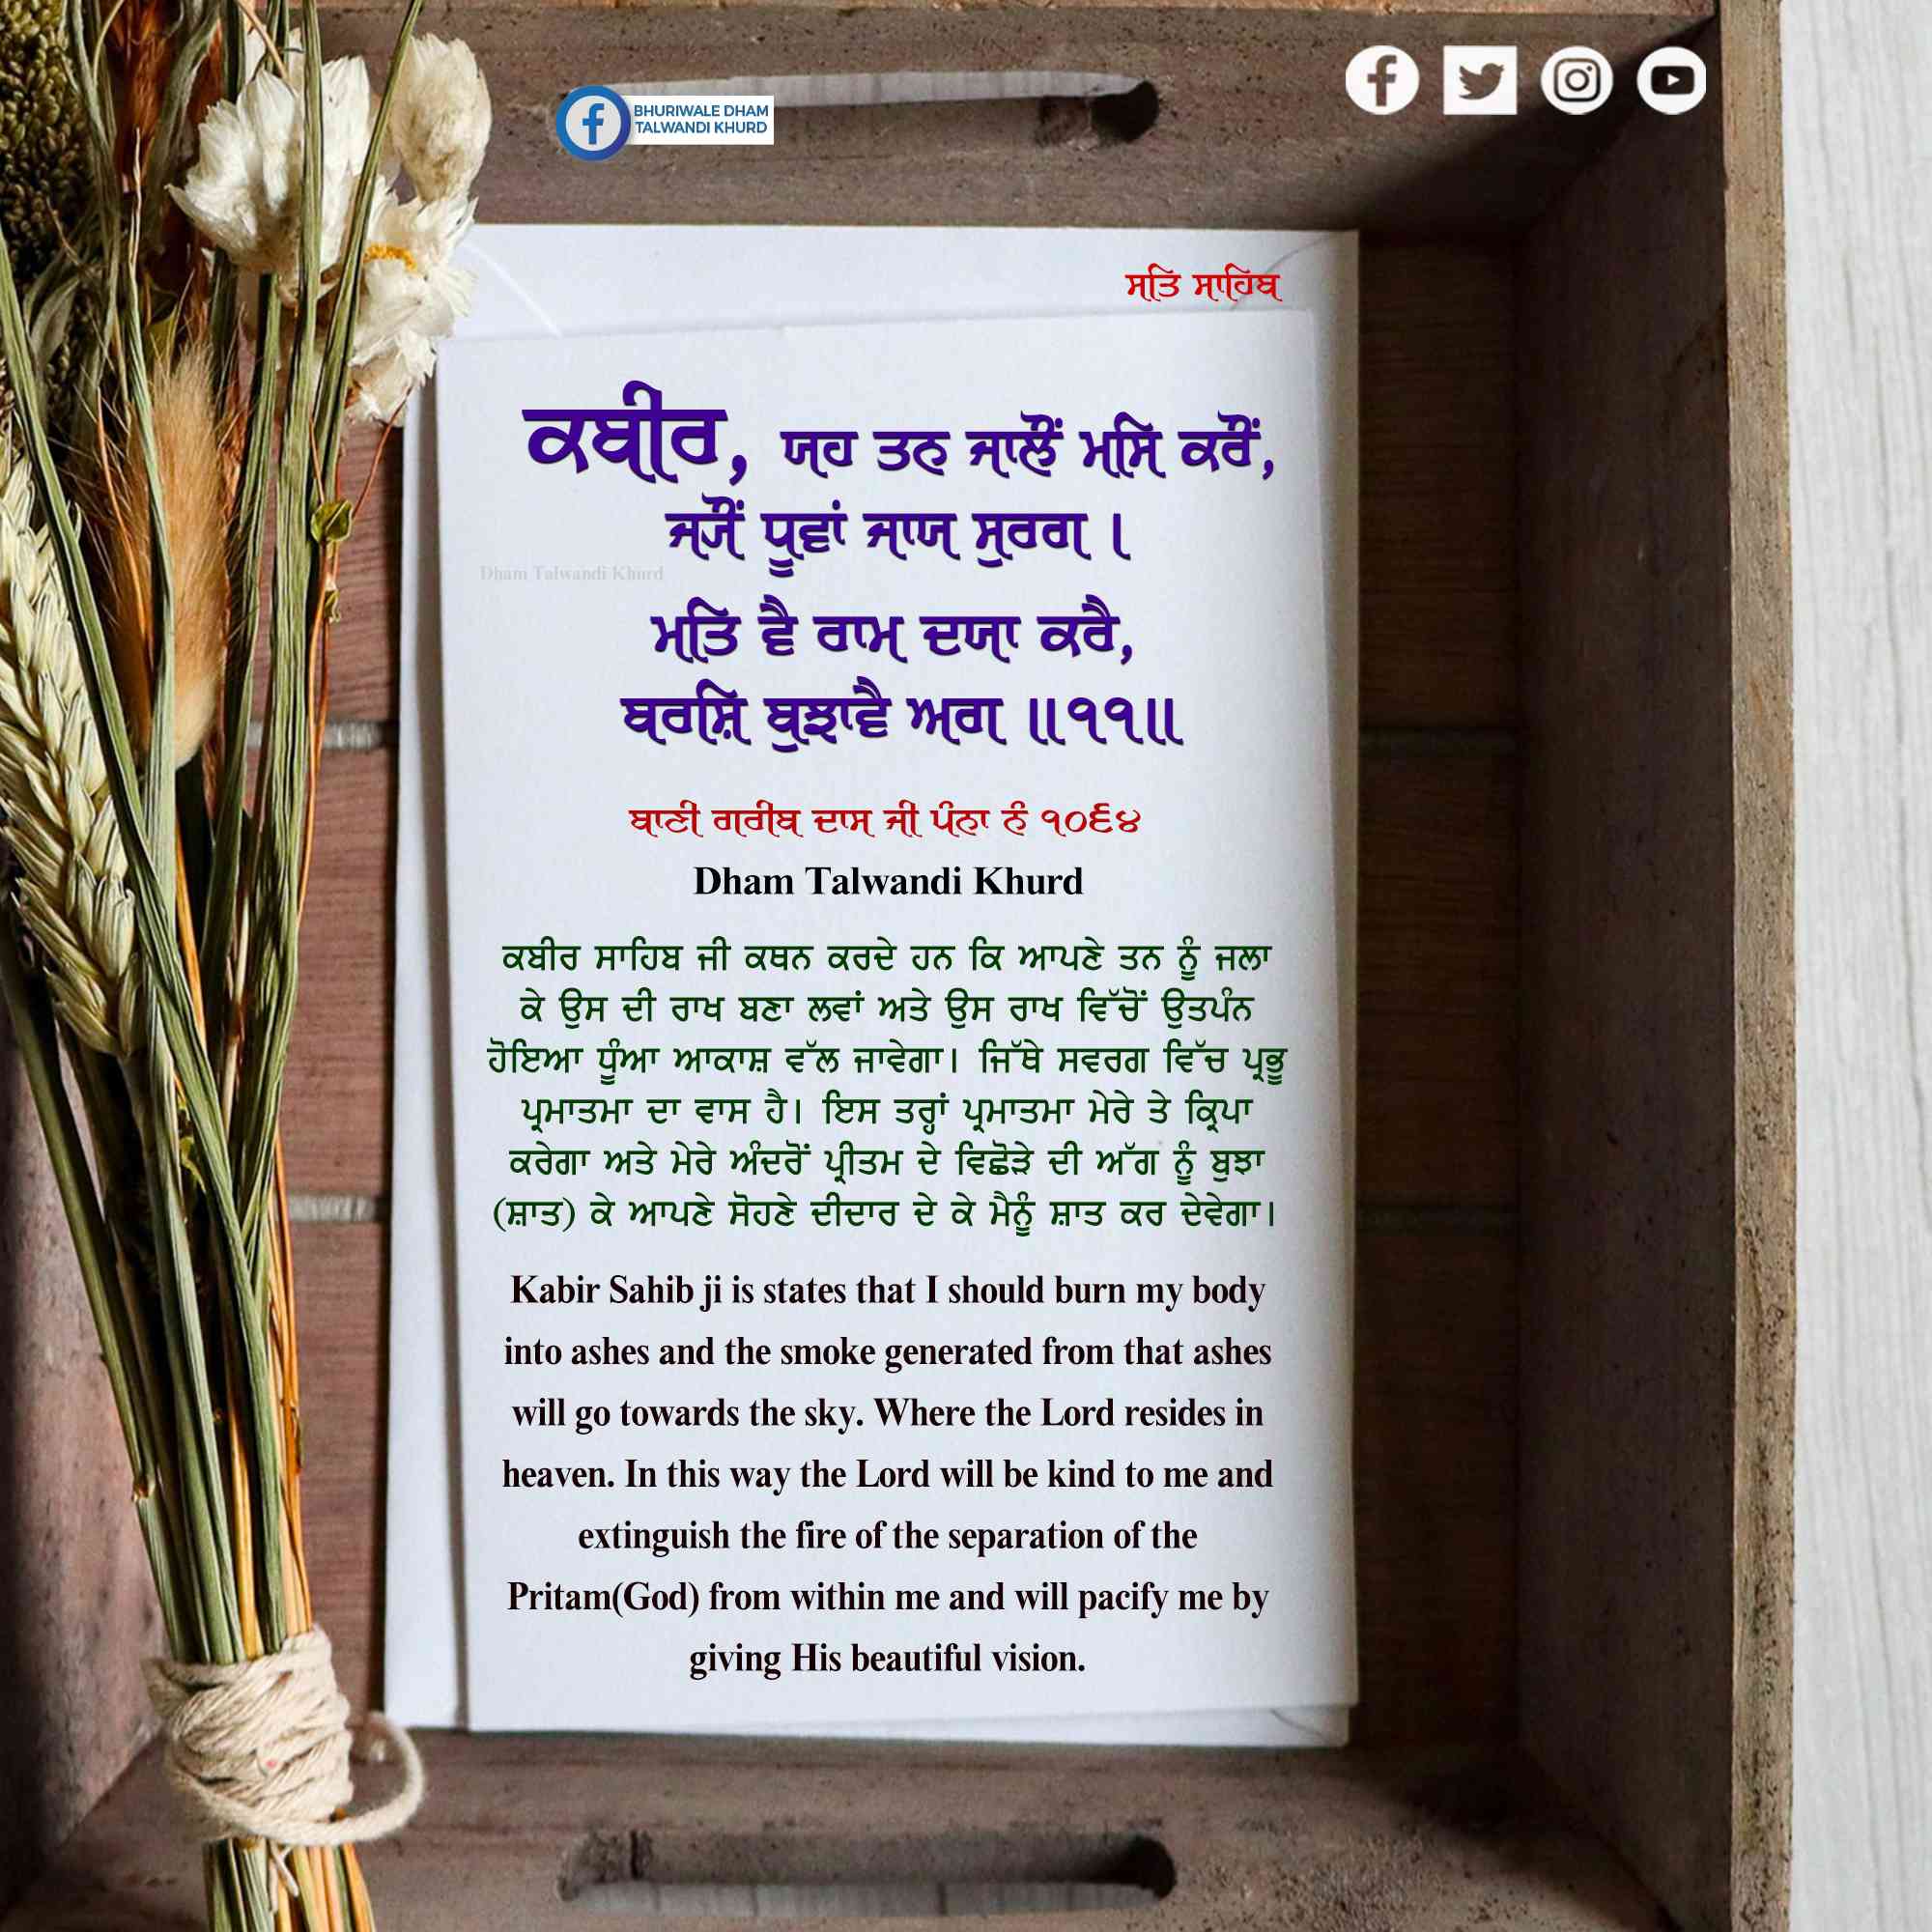 BHURIWALE DHAM
TALWANDI KHURD
ਸਤਿ ਸਾਹਿਬ
ਕਬੀਰ, ਯਹ ਤਨ ਜਾਲੌਂ ਮਸਿ ਕਰੌਂ,
ਜਯੌਂ ਧੂਵਾਂ ਜਾਯ ਸੁਰਗ ।
Dham Talwandi Khurd
ਮਤਿ ਵੈ ਰਾਮ ਦਯਾ ਕਰੈ,
ਬਰਸ਼ਿ ਬੁਝਾਵੈ ਅਗ ॥੧੧॥
ਬਾਣੀ ਗਰੀਬ ਦਾਸ ਜੀ ਪੰਨਾ ਨੰ ੧੦੬੪
Dham Talwandi Khurd
ਕਬੀਰ ਸਾਹਿਬ ਜੀ ਕਥਨ ਕਰਦੇ ਹਨ ਕਿ ਆਪਣੇ ਤਨ ਨੂੰ ਜਲਾ
ਕੇ ਉਸ ਦੀ ਰਾਖ ਬਣਾ ਲਵਾਂ ਅਤੇ ਉਸ ਰਾਖ ਵਿੱਚੋਂ ਉਤਪੰਨ
ਹੋਇਆ ਧੂੰਆ ਆਕਾਸ਼ ਵੱਲ ਜਾਵੇਗਾ। ਜਿੱਥੇ ਸਵਰਗ ਵਿੱਚ ਪ੍ਰਭੂ
ਪ੍ਰਮਾਤਮਾ ਦਾ ਵਾਸ ਹੈ। ਇਸ ਤਰ੍ਹਾਂ ਪ੍ਰਮਾਤਮਾ ਮੇਰੇ ਤੇ ਕ੍ਰਿਪਾ
ਕਰੇਗਾ ਅਤੇ ਮੇਰੇ ਅੰਦਰੋਂ ਪ੍ਰੀਤਮ ਦੇ ਵਿਛੋੜੇ ਦੀ ਅੱਗ ਨੂੰ ਬੁਝਾ
(ਸ਼ਾਤ) ਕੇ ਆਪਣੇ ਸੋਹਣੇ ਦੀਦਾਰ ਦੇ ਕੇ ਮੈਨੂੰ ਸ਼ਾਤ ਕਰ ਦੇਵੇਗਾ।
Kabir Sahib ji is states that I should burn my body
into ashes and the smoke generated from that ashes
will go towards the sky. Where the Lord resides in
heaven. In this way the Lord will be kind to me and
extinguish the fire of the separation of the
Pritam(God) from within me and will pacify me by
giving His beautiful vision.